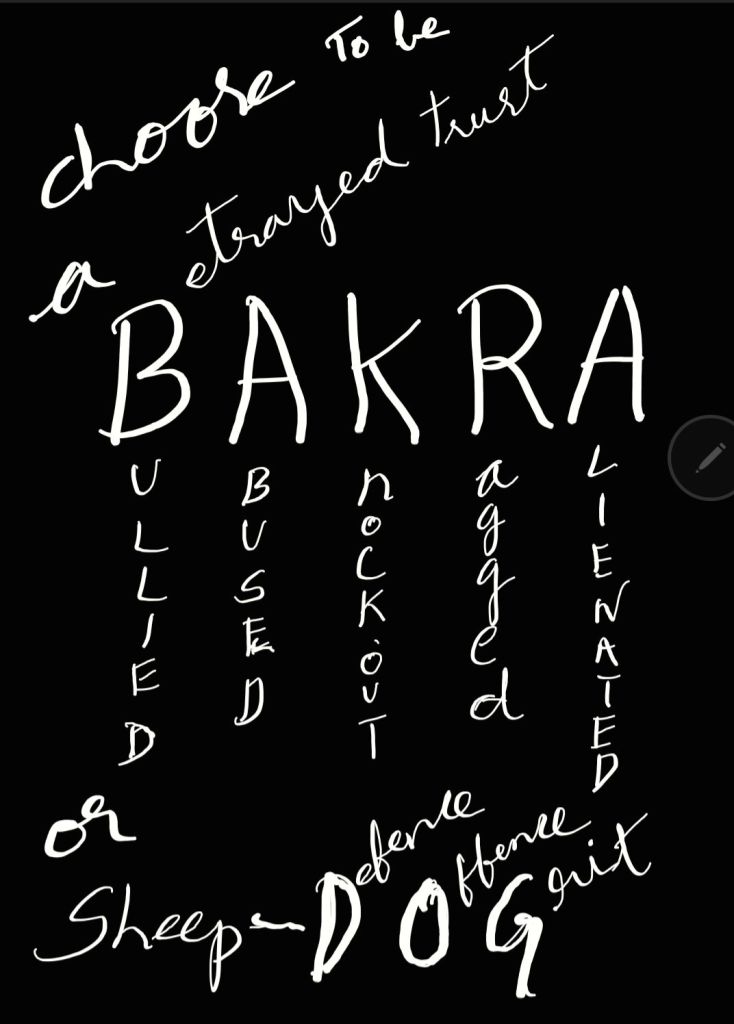 choose To be
a etrayed trust
BAKRA
ULLIED
BUSED
nOCKOUT
agged
LIENATED
or
Sheep-DOG
efence
ffence
rit